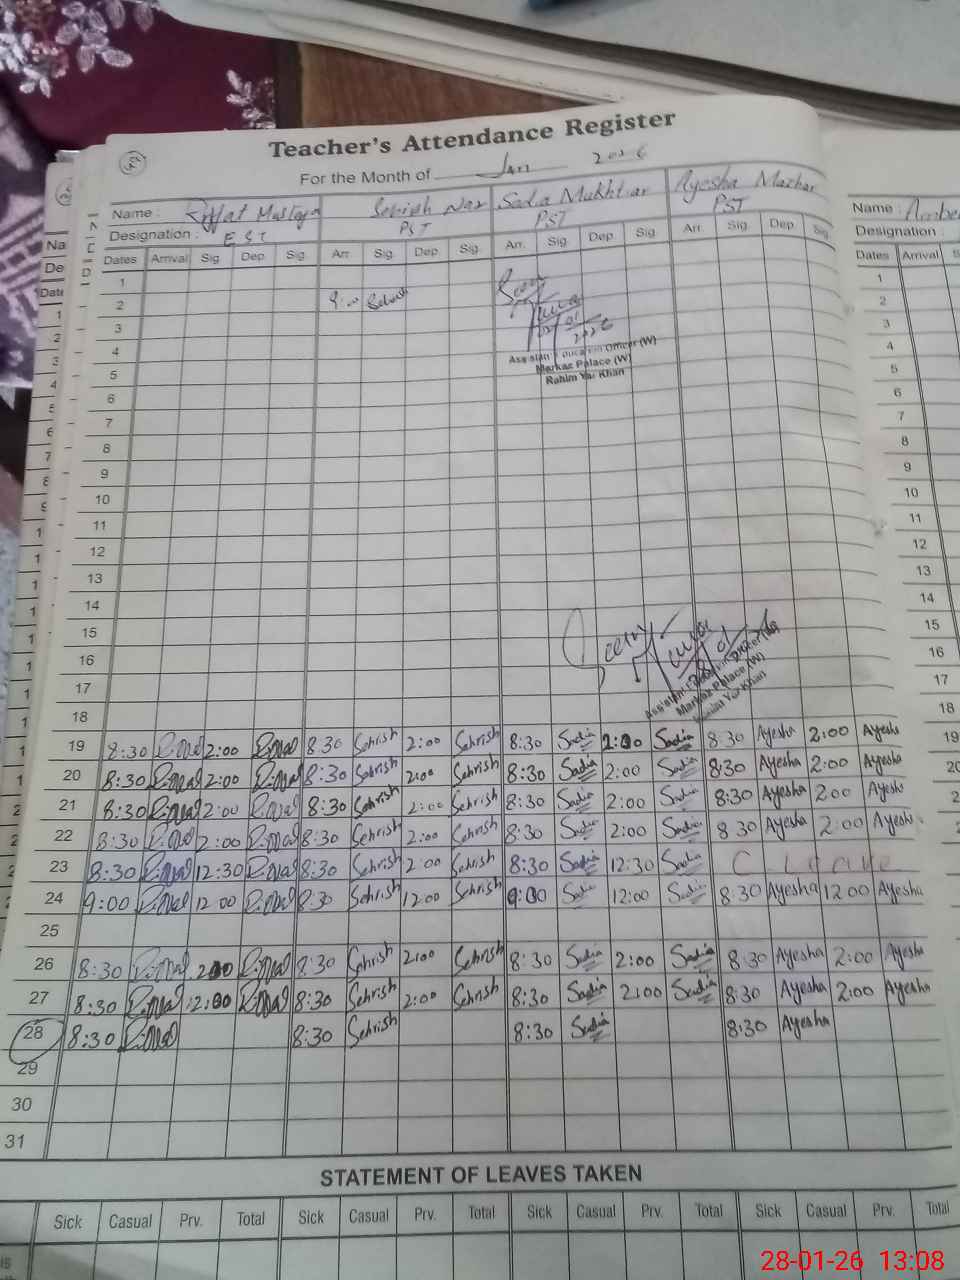 Teacher's Attendance Register
For the Month of Jan 2026
Name : Riffat Mustafa Sehrish Naz Sadia Mukhtiar Ayesha Mazhar
Designation : EST PST PST PST
Dates Arrival Sig. Dep. Sig. Arr. Sig. Dep. Sig. Arr. Sig. Dep. Sig. Arr. Sig. Dep. Sig.
1
2 9:00 Sehrish
3
4
Assistant Education Officer (W)
5
Markaz Palace (W)
Rahim Yar Khan
6
7
8
9
10
11
12
13
14
15
16
17
Markaz Palace (W)
Rahim Yar Khan
18
19 8:30 2:00 8:30 Sehrish 2:00 Sehrish 8:30 Sadia 2:00 Sadia 8:30 Ayesha 2:00 Ayesha
20 8:30 2:00 8:30 Sehrish 2:00 Sehrish 8:30 Sadia 2:00 Sadia 8:30 Ayesha 2:00 Ayesha
21 8:30 2:00 8:30 Sehrish 2:00 Sehrish 8:30 Sadia 2:00 Sadia 8:30 Ayesha 2:00 Ayesha
22 8:30 2:00 8:30 Sehrish 2:00 Sehrish 8:30 Sadia 2:00 Sadia 8:30 Ayesha 2:00 Ayesha
23 8:30 12:30 8:30 Sehrish 2:00 Sehrish 8:30 Sadia 12:30 Sadia C Leave
24 9:00 12:00 8:30 Sehrish 12:00 Sehrish 9:00 Sadia 12:00 Sadia 8:30 Ayesha 12:00 Ayesha
25
26 8:30 2:00 8:30 Sehrish 2:00 Sehrish 8:30 Sadia 2:00 Sadia 8:30 Ayesha 2:00 Ayesha
27 8:30 2:00 8:30 Sehrish 2:00 Sehrish 8:30 Sadia 2:00 Sadia 8:30 Ayesha 2:00 Ayesha
28 8:30 8:30 Sehrish 8:30 Sadia 8:30 Ayesha
29
30
31
STATEMENT OF LEAVES TAKEN
Sick Casual Prv. Total Sick Casual Prv. Total Sick Casual Prv. Total Sick Casual Prv. Total
Name :
Designation :
Dates Arrival
1
2
3
4
5
6
7
8
9
10
11
12
13
14
15
16
17
18
19
20
28-01-26 13:08